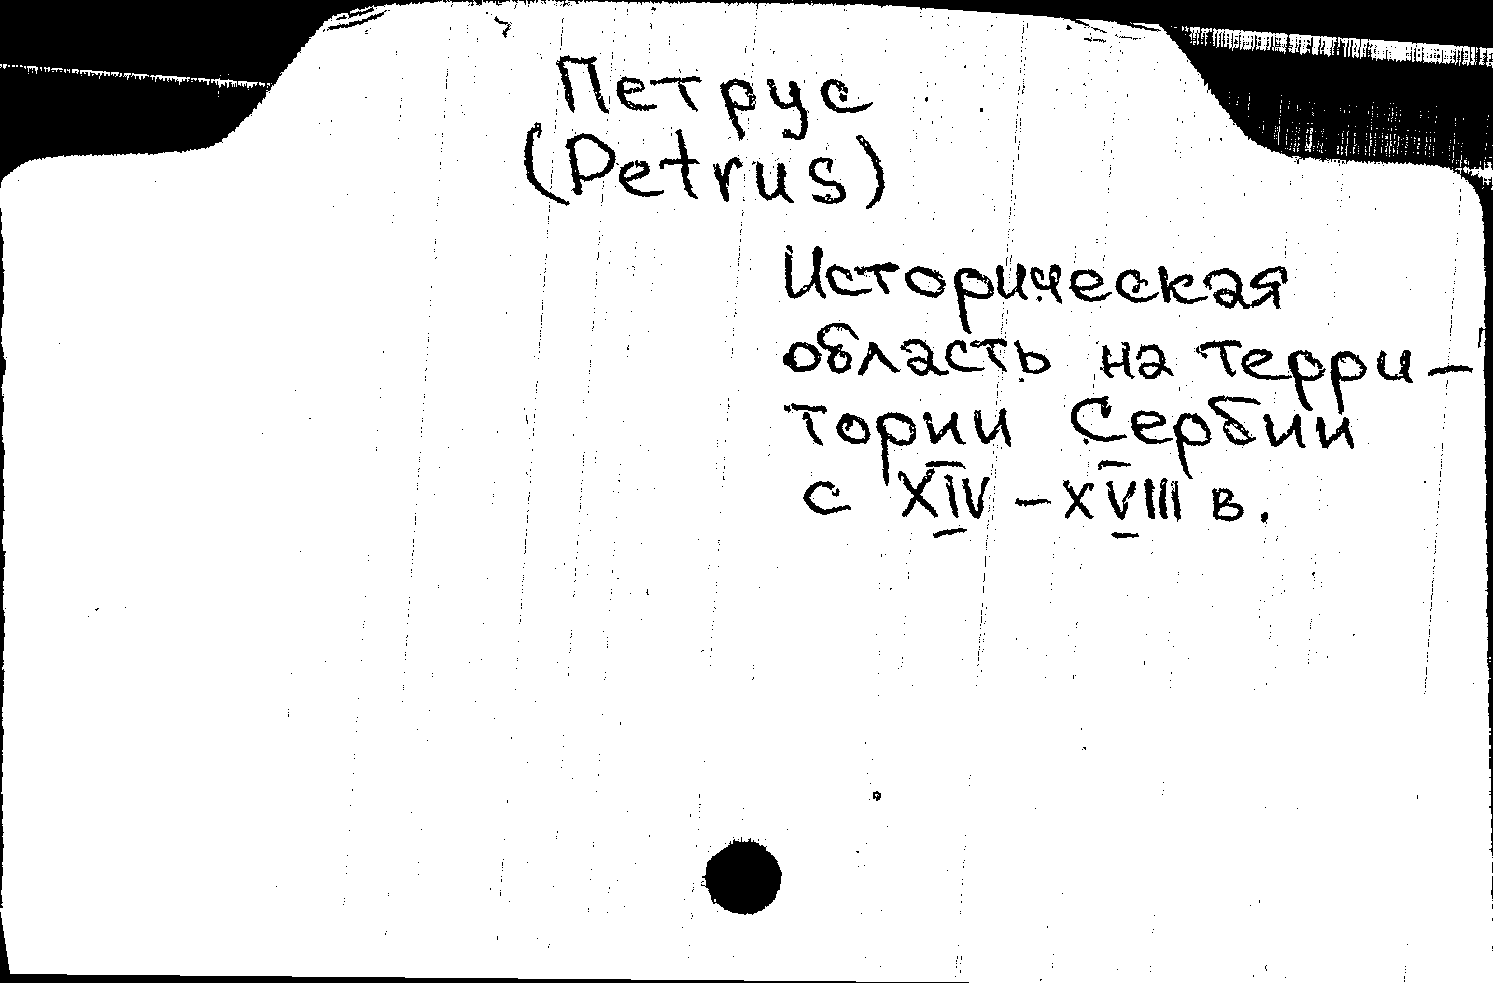 Петрус
(Petrus)
Историческая
область на терри-
тории Сербии
с XIV - XVIII в.